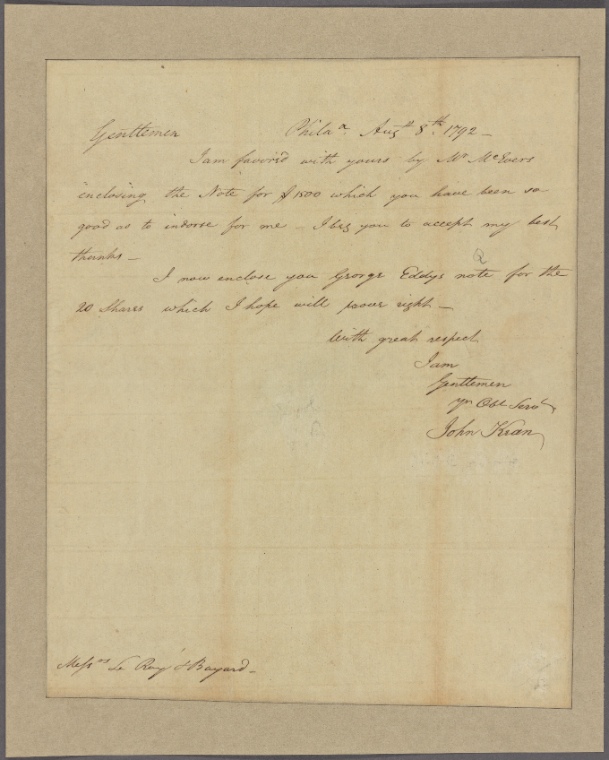 Gentlemen Philaᵃ Augᵗ 8ᵗʰ 1792 –
I am favor'd with yours by Mʳ McEvers
enclosing the Note for $1500 which you have been so
good as to indorse for me – I beg you to accept my best
thanks –
I now enclose you George Eddys note for the
20 Shares which I hope will prove right –
With great respect
I am
Gentlemen
yr Obt Servt
John Kean
Messʳˢ Le Roy & Bayard –